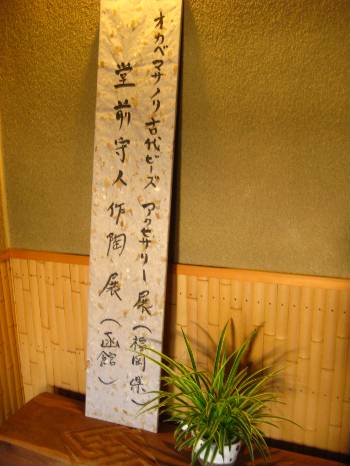 オカベマサノリ古代ビーズ アクセサリー展(福岡県)
堂前守人作陶展(函館)